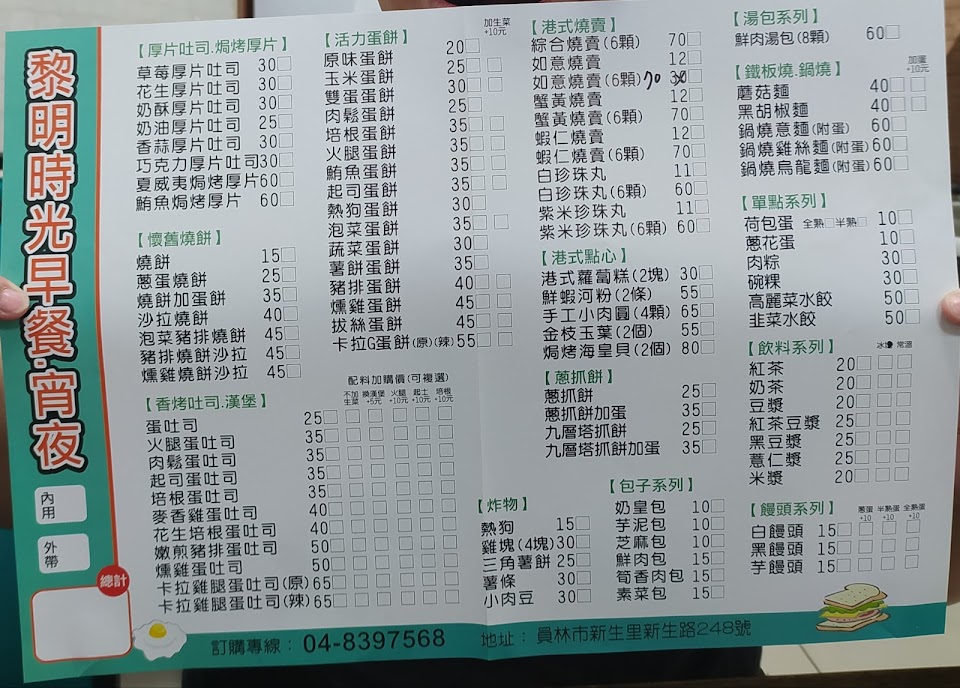 黎明時光早餐.宵夜
內用
外帶
總計
【厚片吐司.焗烤厚片】
草莓厚片吐司 30
花生厚片吐司 30
奶酥厚片吐司 30
奶油厚片吐司 25
香蒜厚片吐司 30
巧克力厚片吐司30
夏威夷焗烤厚片60
鮪魚焗烤厚片 60
【懷舊燒餅】
燒餅 15
蔥蛋燒餅 25
燒餅加蛋餅 35
沙拉燒餅 40
泡菜豬排燒餅 45
豬排燒餅沙拉 45
燻雞燒餅沙拉 45
【活力蛋餅】
加生菜
+10元
原味蛋餅 20
玉米蛋餅 25
雙蛋蛋餅 30
肉鬆蛋餅 25
培根蛋餅 35
火腿蛋餅 35
鮪魚蛋餅 35
起司蛋餅 35
熱狗蛋餅 30
泡菜蛋餅 35
蔬菜蛋餅 30
薯餅蛋餅 35
豬排蛋餅 40
燻雞蛋餅 45
拔絲蛋餅 45
卡拉G蛋餅(原)(辣) 55
【香烤吐司.漢堡】
配料加購價(可複選)
不加生菜 換漢堡+5元 火腿+10元 起士+10元 培根+10元
蛋吐司 25
火腿蛋吐司 35
肉鬆蛋吐司 35
起司蛋吐司 35
培根蛋吐司 35
麥香雞蛋吐司 40
花生培根蛋吐司 40
嫩煎豬排蛋吐司 50
燻雞蛋吐司 50
卡拉雞腿蛋吐司(原) 65
卡拉雞腿蛋吐司(辣) 65
【港式燒賣】
綜合燒賣(6顆) 70
如意燒賣 12
如意燒賣(6顆) 70 30
蟹黃燒賣 12
蟹黃燒賣(6顆) 70
蝦仁燒賣 12
蝦仁燒賣(6顆) 70
白珍珠丸 11
白珍珠丸(6顆) 60
紫米珍珠丸 11
紫米珍珠丸(6顆) 60
【港式點心】
港式蘿蔔糕(2塊) 30
鮮蝦河粉(2條) 55
手工小肉圓(4顆) 65
金枝玉葉(2個) 55
焗烤海皇貝(2個) 80
【蔥抓餅】
蔥抓餅 25
蔥抓餅加蛋 35
九層塔抓餅 25
九層塔抓餅加蛋 35
【炸物】
熱狗 15
雞塊(4塊) 30
三角薯餅 25
薯條 30
小肉豆 30
【包子系列】
奶皇包 10
芋泥包 10
芝麻包 10
鮮肉包 15
筍香肉包 15
素菜包 15
【湯包系列】
鮮肉湯包(8顆) 60
【鐵板燒.鍋燒】
加蛋
+10元
蘑菇麵 40
黑胡椒麵 40
鍋燒意麵(附蛋) 60
鍋燒雞絲麵(附蛋) 60
鍋燒烏龍麵(附蛋) 60
【單點系列】
荷包蛋 全熟 半熟 10
蔥花蛋 10
肉粽 30
碗粿 30
高麗菜水餃 50
韭菜水餃 50
【飲料系列】
冰塊 常溫
紅茶 20
奶茶 20
豆漿 20
紅茶豆漿 25
黑豆漿 25
薏仁漿 25
米漿 25
【饅頭系列】
蔥蛋+10 半熟蛋+10 全熟蛋+10
白饅頭 15
黑饅頭 15
芋饅頭 15
訂購專線： 04-8397568 地址： 員林市新生里新生路248號